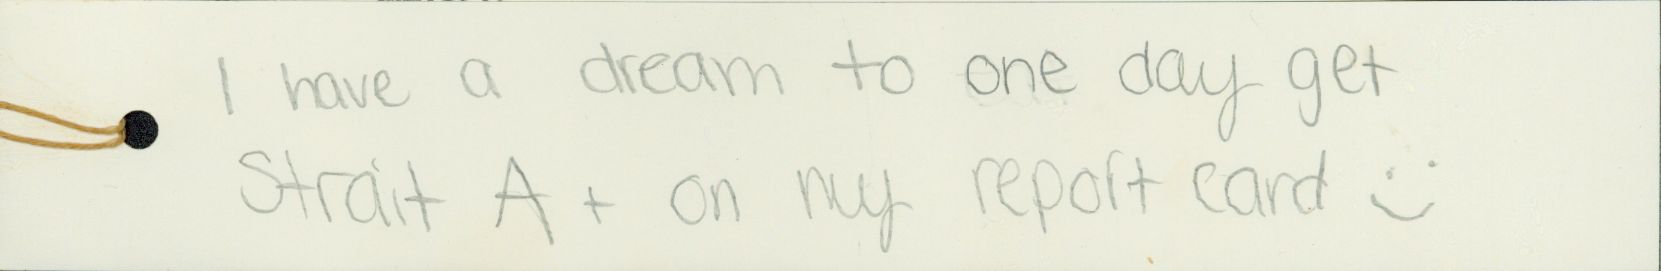 I have a dream to one day get
Strait A+ on my report card :)